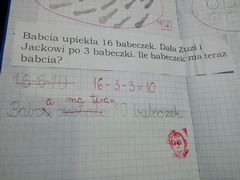 Babcia upiekła 16 babeczek. Dała Zuzi i
Jackowi po 3 babeczki. Ile babeczek ma teraz
babcia?
16-6=10 16-3-3=10
a ma teraz
babeczek.